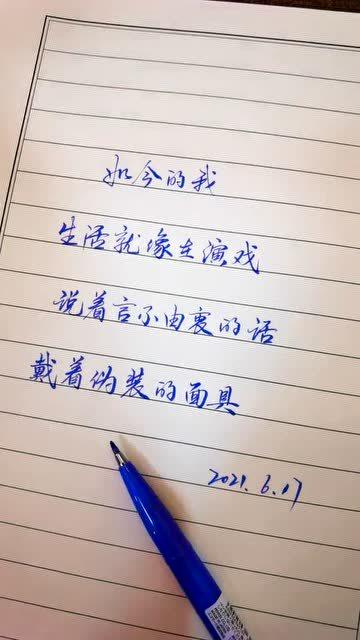 如今的我
生活就像在演戏
说着言不由衷的话
戴着伪装的面具
2021.6.17